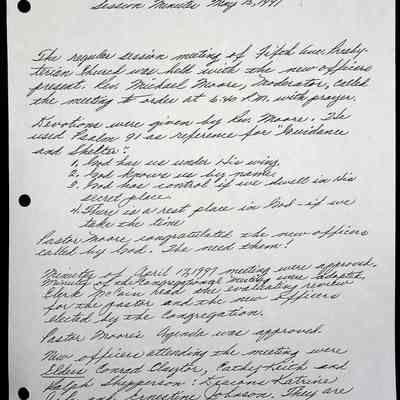 Session Minutes May 12, 1997
The regular session meeting of Fifth Ave. Presby-
terian Church was held with the new officers
present. Rev. Michael Moore, Moderator, called
the meeting to order at 6:40 P.M. with prayer.
Devotions were given by Rev. Moore. He
used Psalm 91 as reference for "Guidance
and Shelter":
1. God has us under His wing.
2. God knows us by name.
3. God has control if we dwell in His
secret place.
4. There is a rest place in God - if we
take the time
Pastor Moore congratulated the new officers
called by God. The need them!
Minutes of April 17, 1997 meeting were approved.
Minutes of the Congregational meeting were adopted.
Clerk McCain read the evaluating review
for the pastor and the new officers
elected by the Congregation.
Pastor Moore's Agenda was approved
New officers attending the meeting were
Elders Conrad Claytor, Cathey Keith and
Ralph Shepperson: Deacons Katrine
and Ernestine Johnson. They are